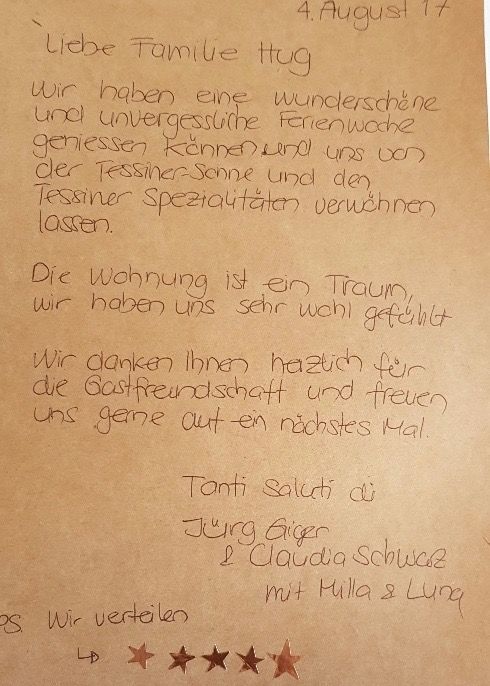 4. August 17
Liebe Familie Hug
Wir haben eine wunderschöne
und unvergessliche Ferienwoche
geniessen können und uns von
der Tessiner-Sonne und den
Tessiner Spezialitäten verwöhnen
lassen.
Die Wohnung ist ein Traum,
wir haben uns sehr wohl gefühlt
Wir danken Ihnen herzlich für
die Gastfreundschaft und freuen
uns gerne auf ein nächstes Mal.
Tanti Saluti di
Jürg Giger
& Claudia Schwarz
mit Milla & Luna
ps. Wir verteilen